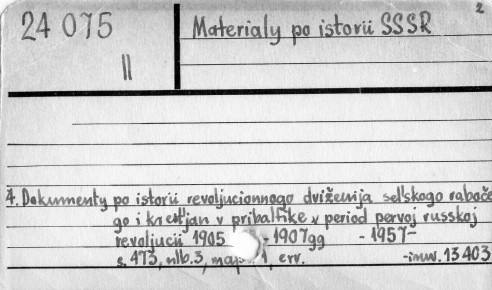 2
24 075 Materialy po istorii SSSR
II
4. Dokumenty po istorii revoljucionnogo dviženija sel'skogo raboče
go i krest'jan v pribaltike v period pervoj russkoj
revoljucii 1905 -1907gg -1957-
s. 473, nlb.3, 1, erv. -inw. 13403